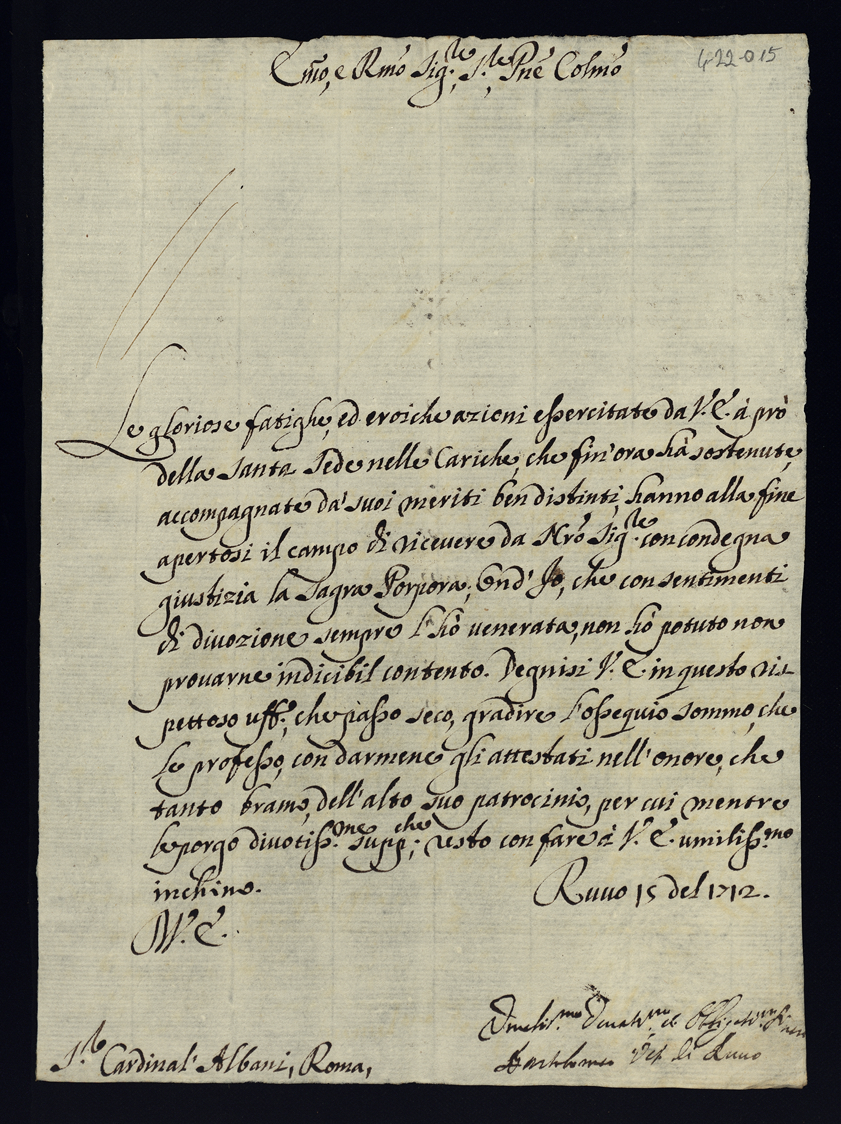 Emo, e Rmo Sig.re, S.re Pne Colmo
422-015
Le gloriose fatighe, ed eroiche azioni essercitate da V. E. à prò
della Santa Sede nelle Cariche, che fin'ora hà sostenute,
accompagnate da' suoi meriti ben distinti, hanno alla fine
apertosi il campo di ricevere da Nrõ Sig.re con condegna
giustizia la Sagra Porpora; Ond' Io, che con sentimenti
di divozione sempre l'hò venerata, non hò potuto non
provarne indicibil contento. Degnisi V. E. in questo ris-
pettoso uff.o, che passo seco, gradire l'ossequio sommo, che
le professo, con darmene gli attestati nell'onore, che
tanto bramo, dell'alto suo patrocinio, per cui mentre
le porgo divotiss.me supp.che, resto con fare à V. E. umiliss.mo
inchino.
Ruvo 15 del 1712.
V. E.
Divotis.mo et Obligatis.mo
Bartolomeo Ves. di Ruvo
S.r Cardinal' Albani, Roma,